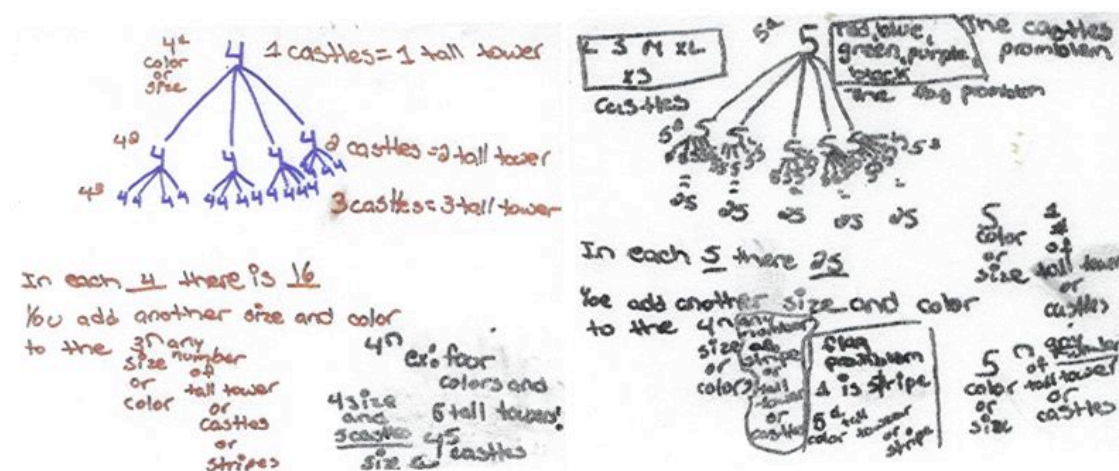 4¹
color
or
size
4
1 castles = 1 tall tower
4²
4 4 4 4
2 castles = 2 tall tower
4³
4 4 4 4 4 4 4 4 4 4 4 4 4 4 4 4
3 castles = 3 tall tower
In each 4 there is 16
You add another size and color
to the 3ⁿ any
size number
or of
color tall tower
or
castles
or
stripes
4ⁿ
ex: four
colors and
5 tall towers!
4 size
and
5 castles
size
4⁵
castles
L S M XL
XS
castles
5¹
5
red, blue,
green, purple,
black
The castles
promblem
The flag promblem
5²
5 5 5 5 5
5³
= = = = =
25 25 25 25 25
In each 5 there 25
You add another size and color
to the 4ⁿ any
number
size of
or stripe
color or
tall
tower
or
castles
flag
promblem
1 is stripe
5¹ tall
color tower
or
stripe
5 1
color of
or
size tall tower
or
castles
5 n any
number
color of tall tower
or or
size castles